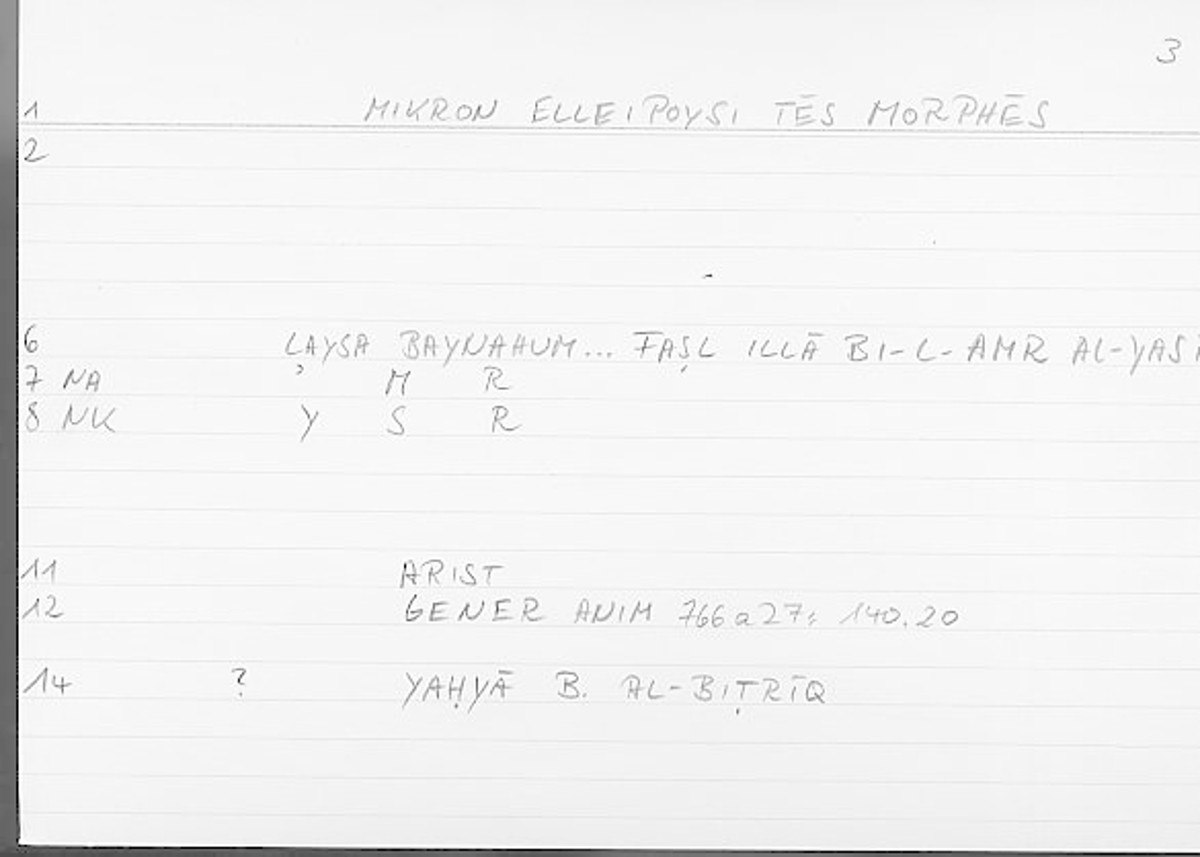 3
1 MIKRON ELLEIPOYSI TĒS MORPHĒS
2
6 LAYSA BAYNAHUM... FAṢL ILLĀ BI-L-AMR AL-YAS
7 NA ʾ M R
8 NK Y S R
11 ARIST
12 GENER ANIM 766a27; 140.20
14 ? YAḤYĀ B. AL-BIṬRĪQ